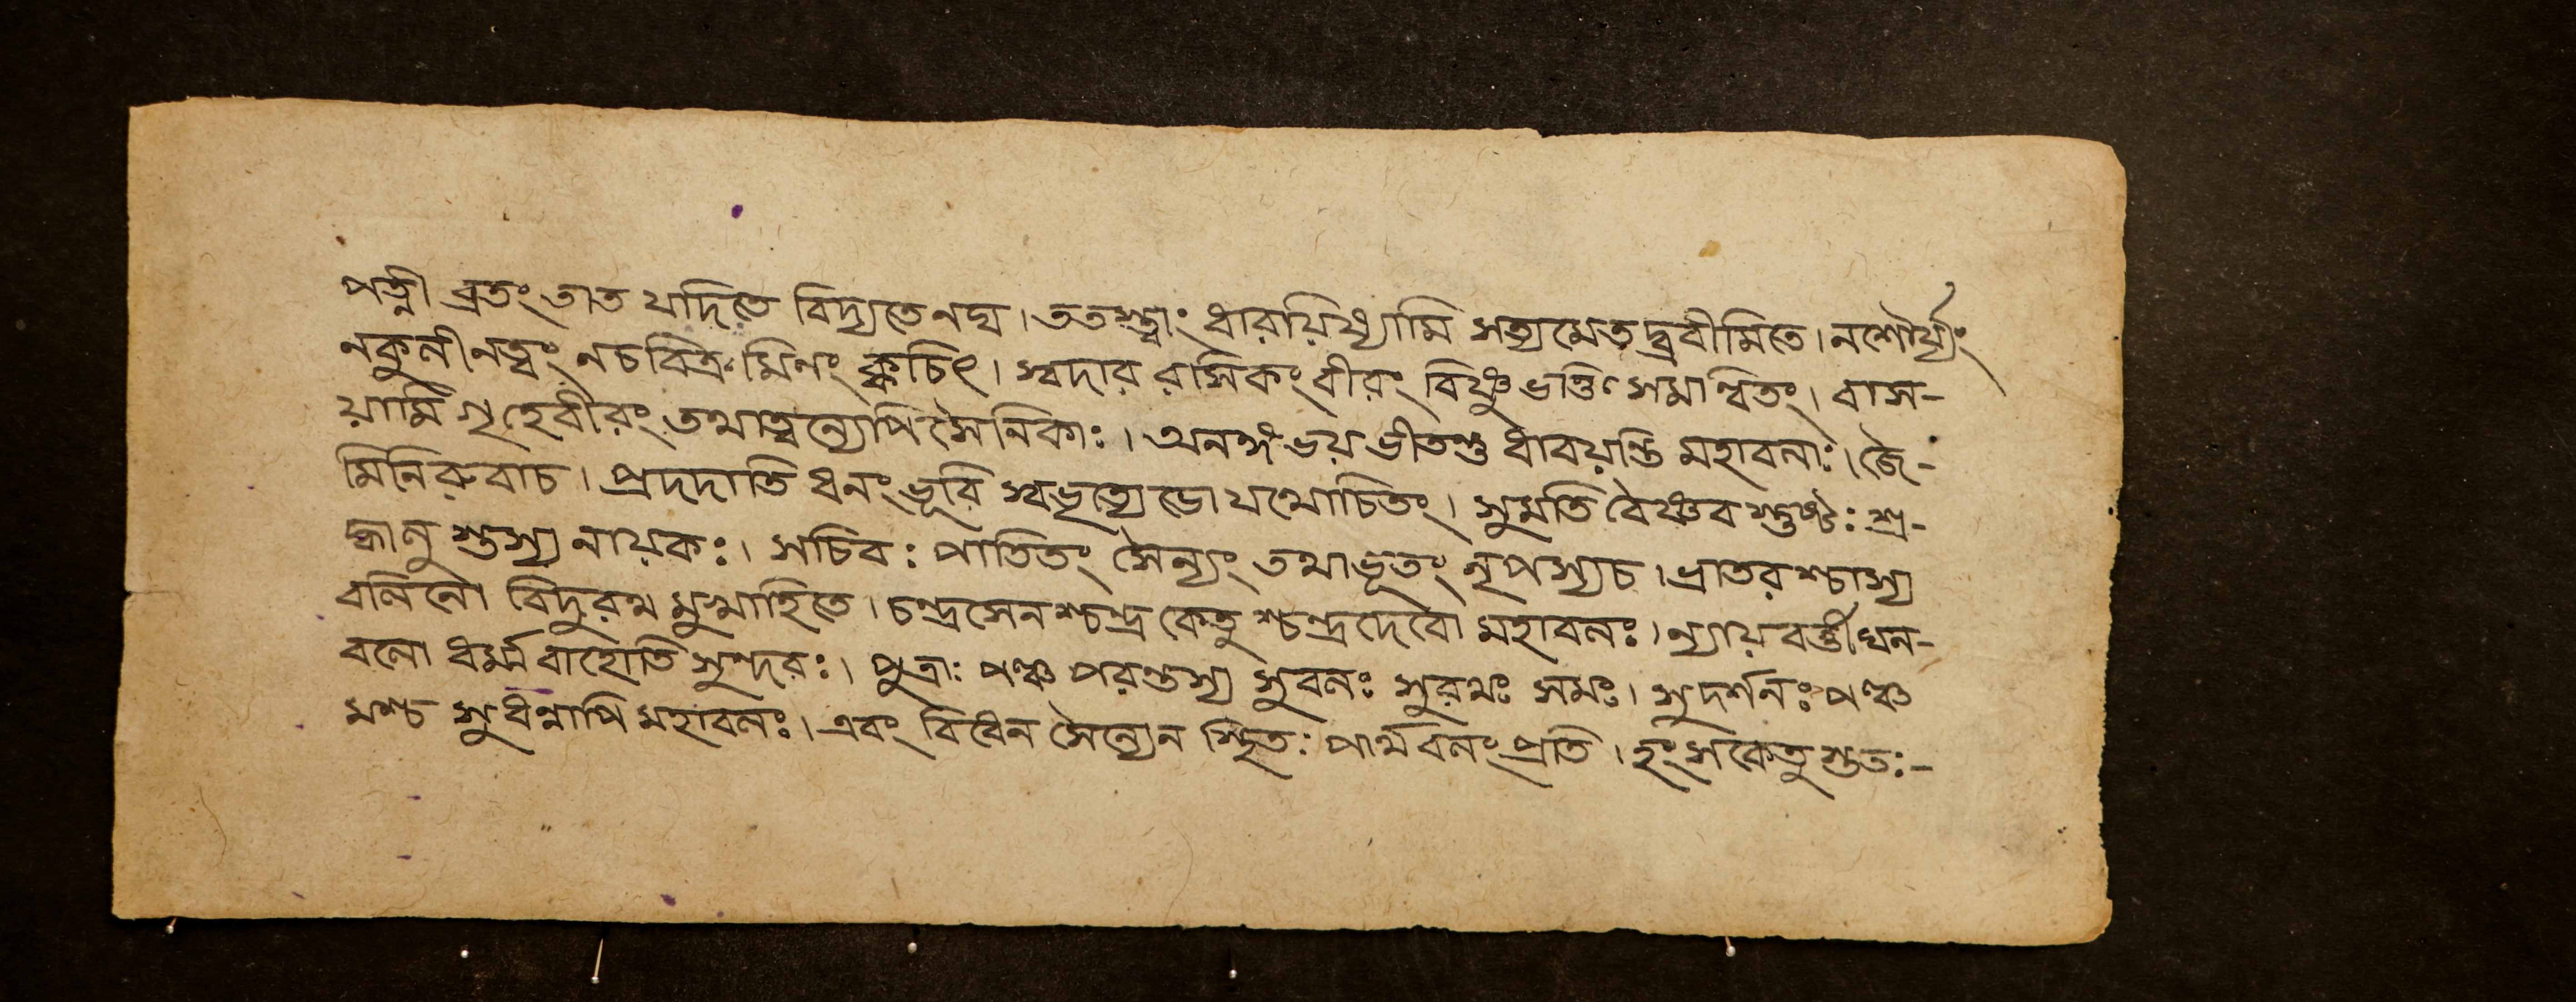 পত্নী ব্রতং তাত যদিতে বিদ্যতেনঘ । ততস্ত্বাং ধারয়িষ্যামি সত্যমেতদ্ব্রবীমিতে । নশৌর্য্যং
নকুলীনত্বং নচবিত্রমিনং ক্বচিৎ । স্বদার রসিকং বীরং বিষ্ণুভক্তি সমান্বিতং । বাস-
য়ামি গৃহেবীরং তথাত্বন্যেপি সৈনিকাঃ । অনঙ্গভয় ভীতস্তু ধাবয়ন্তি মহাবলাঃ । জৈ-
মিনিরুবাচ । প্রদদাতি ধনং ভূরি স্বভৃত্যেভ্যো যথোচিতং । সুমতি বৈষ্ণব শ্রেষ্ঠঃ শ্র-
দ্ধালু স্তস্য নায়কঃ । সচিবঃ পাতিতং সৈন্যং তথাভূতং নৃপস্যচ । ভ্রাতরশ্চাস্য
বলিনো বিদুরথ মুখাহিতে । চন্দ্রসেনশ্চন্দ্র কেতু শ্চন্দ্রদেবো মহাবলঃ । ন্যায়বর্ত্তী ধন-
বলো ধর্ম্ম বাহোতি সুন্দরঃ । পুত্রাঃ পঞ্চ পরন্তস্য সুবলঃ সুরথঃ সমঃ । সুদর্শনঃ পঞ্চ
মশ্চ সুধন্বাপি মহাবলঃ । এবং বিধেন সৈন্যেন স্থিতঃ পার্থবলং প্রতি । হংসকেতু স্ততঃ-